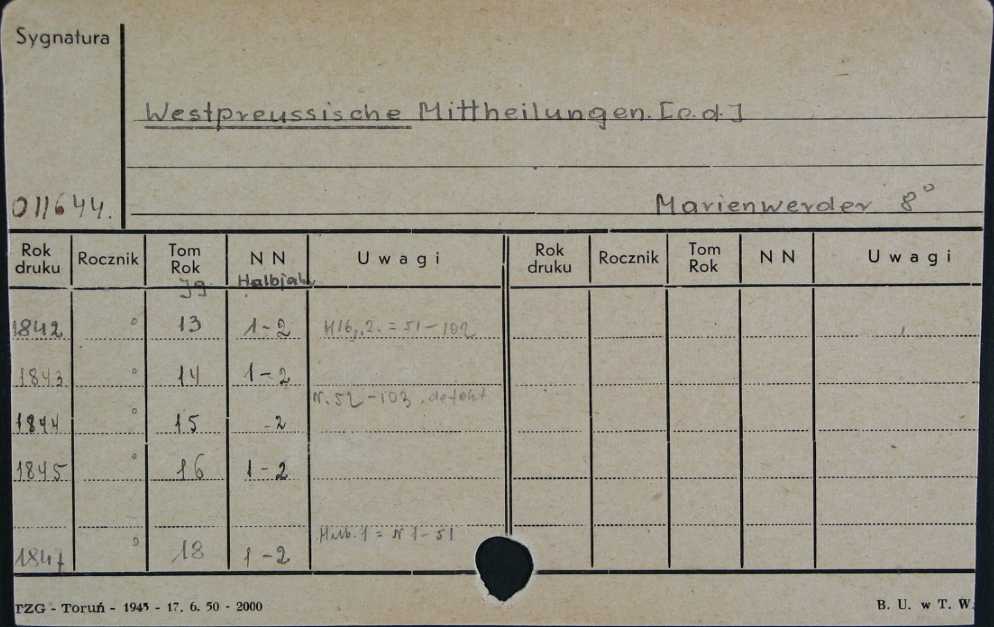 Sygnatura
Westpreussische Mittheilungen. [c.d.]
011644. Marienwerder 8°
Rok druku Rocznik Tom Rok N N Uwagi Rok druku Rocznik Tom Rok N N Uwagi
Jg. Halbjah.
1842 ° 13 1-2 2. = 51-102
1843 ° 14 1-2
N. 52-103. defekt
1844 ° 15 -2
1845 ° 16 1-2
Halb. 1 = N 1-51
1847 ° 18 1-2
TZG - Toruń - 1945 - 17. 6. 50 - 2000 B. U. w T. W.